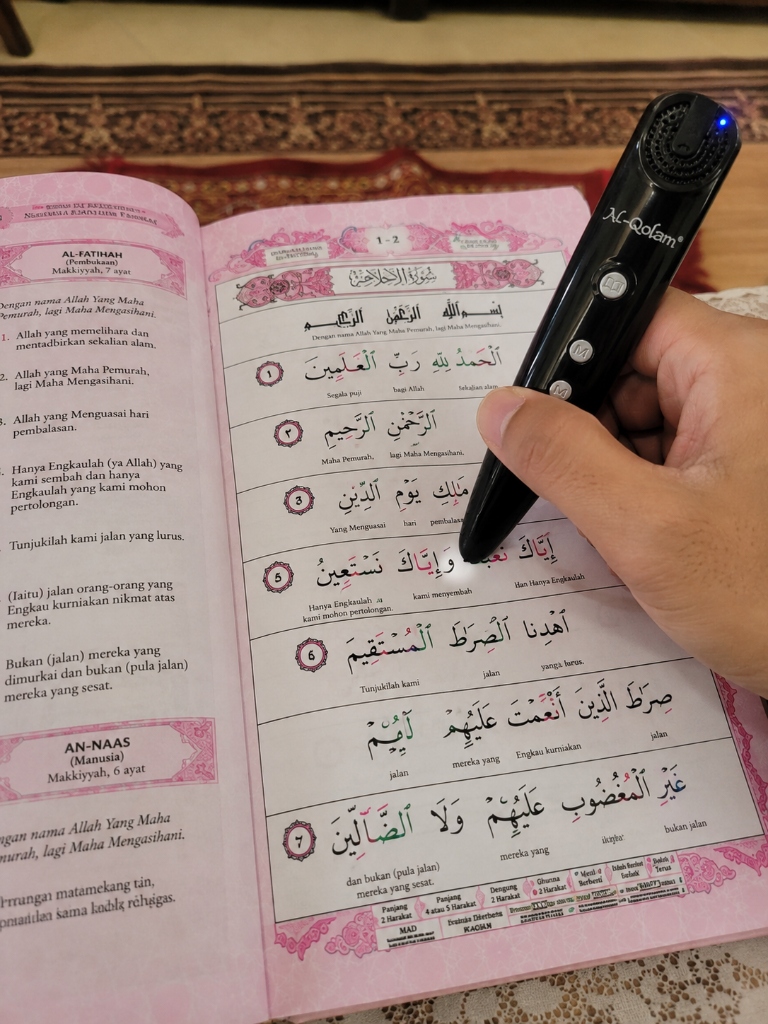 AL-FATIHAH
(Pembukaan)
Makkiyyah, 7 ayat
Dengan nama Allah Yang Maha
Pemurah, lagi Maha Mengasihani.
1. Allah yang memelihara dan
mentadbirkan sekalian alam.
2. Allah yang Maha Pemurah,
lagi Maha Mengasihani.
3. Allah yang Menguasai hari
pembalasan.
Hanya Engkaulah (ya Allah) yang
kami sembah dan hanya
Engkaulah yang kami mohon
pertolongan.
Tunjukilah kami jalan yang lurus.
(Iaitu) jalan orang-orang yang
Engkau kurniakan nikmat atas
mereka.
Bukan (jalan) mereka yang
dimurkai dan bukan (pula jalan)
mereka yang sesat.
AN-NAAS
(Manusia)
Makkiyyah, 6 ayat
ngan nama Allah Yang Maha
murah, lagi Maha Mengasihani.
1 - 2
سُورَةُ
بِسْمِ اللَّهِ الرَّحْمَٰنِ الرَّحِيمِ
Dengan nama Allah Yang Maha Pemurah, lagi Maha Mengasihani.
ٱلْحَمْدُ لِلَّهِ رَبِّ ٱلْعَٰلَمِينَ ١
Segala puji bagi Allah Sekalian alam
ٱلرَّحْمَٰنِ ٱلرَّحِيمِ ٣
Maha Pemurah, lagi Maha Mengasihani.
مَٰلِكِ يَوْمِ ٱلدِّينِ 3
Yang Menguasai hari pembalasa
إِيَّاكَ وَإِيَّاكَ نَسْتَعِينُ 5
Hanya Engkaulah kami menyembah Han Hanya Engkaulah
kami mohon pertolongan.
ٱهْدِنَا ٱلصِّرَٰطَ ٱلْمُسْتَقِيمَ 6
Tunjukilah kami jalan yanga lurus.
صِرَٰطَ ٱلَّذِينَ أَنْعَمْتَ عَلَيْهِمْ
jalan mereka yang Engkau kurniakan jalan
غَيْرِ ٱلْمَغْضُوبِ عَلَيْهِمْ وَلَا ٱلضَّآلِّينَ 7
dan bukan (pula jalan) mereka yang bukan jalan
mereka yang sesat.
Panjang
2 Harakat
Panjang
4 atau 5 Harakat
Dengung
2 Harakat
Ghunna
2 Harakat
MAD
Al-Qolam®
M
M